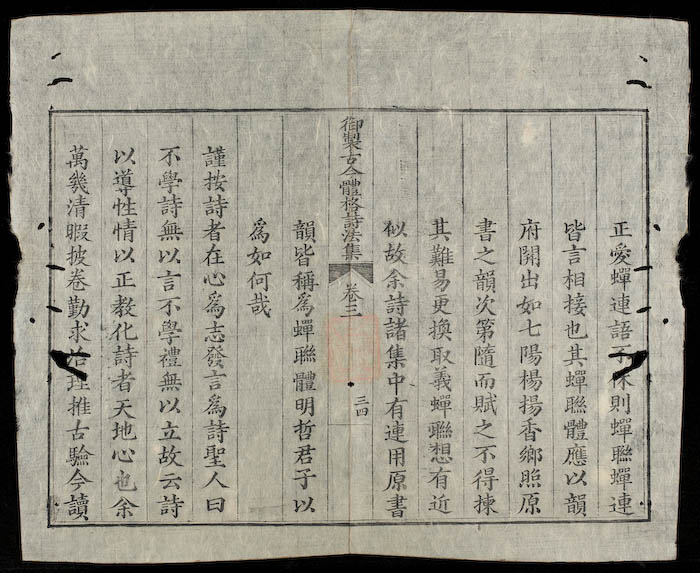 正愛蟬連語不休則蟬聯蟬連
皆言相接也其蟬聯體應以韻
府開出如七陽楊揚香鄉照原
書之韻次第隨而賦之不得揀
其難易更換取義蟬聯想有近
似故余詩諸集中有連用原書
御製古今體格詩法集 卷三 三四
韻皆稱爲蟬聯體明哲君子以
爲如何哉
謹按詩者在心爲志發言爲詩聖人曰
不學詩無以言不學禮無以立故云詩
以導性情以正教化詩者天地心也余
萬幾清暇披卷勤求治理推古驗今讀